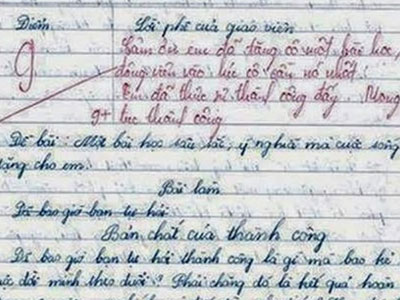 Điểm Lời phê của giáo viên
9 Cảm ơn em đã tặng cô một bài học,
động viên vào lúc cô cần nó nhất!
Em đã thực sự thành công đấy. Mong
9+ tục thành công
Đề bài: Một bài học sâu sắc, ý nghĩa mà cuộc sống
tặng cho em.
Bài làm
Đã bao giờ bạn tự hỏi
Bản chất của thành công
Đã bao giờ bạn tự hỏi thành công là gì mà bao kẻ
đời mình theo đuổi? Phải chăng đó là kết quả hoàn